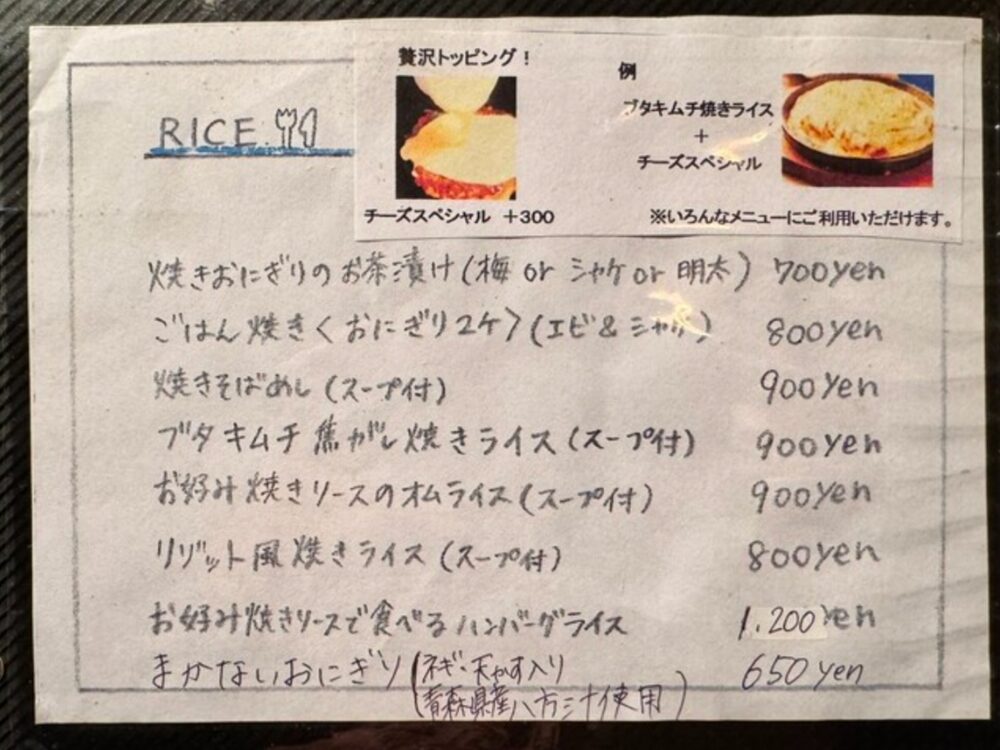 贅沢トッピング!
例
ブタキムチ焼きライス
+
チーズスペシャル
チーズスペシャル +300
※いろんなメニューにご利用いただけます。
RICE
焼きおにぎりのお茶漬け(梅 or シャケ or 明太) 700yen
ごはん焼き〈おにぎり2ケ〉(エビ&シャケ) 800yen
焼きそばめし(スープ付) 900yen
ブタキムチ焦がし焼きライス(スープ付) 900yen
お好み焼きソースのオムライス(スープ付) 900yen
リゾット風焼きライス(スープ付) 800yen
お好み焼きソースで食べるハンバーグライス 1.200yen
まかないおにぎり(ネギ・天かす入り 650yen
青森県産八方汁使用)